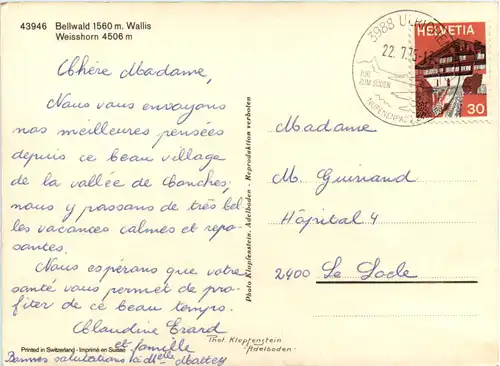 43946 Bellwald 1560 m. Wallis
Weisshorn 4506 m
Chère Madame,
Nous vous envoyons
nos meilleures pensées
depuis ce beau village
de la vallée de Conches;
nous y passons de très bel-
les vacances calmes et repo-
santes.
Nous espérons que votre
santé vous permet de pro-
fiter de ce beau temps.
Claudine Erard
et famille
Bonnes salutations à Mlle Mattey
Printed in Switzerland - Imprimé en Suisse
Photo Klopfenstein, Adelboden - Reproduktion verboten
Phot. Klopfenstein
Adelboden
3988 ULRICHEN
22.7.75
TOR
ZUM SÜDEN
NUFENENPASS
HELVETIA
30
Madame
M. Guinand
Hôpital 4
2400 Le Locle